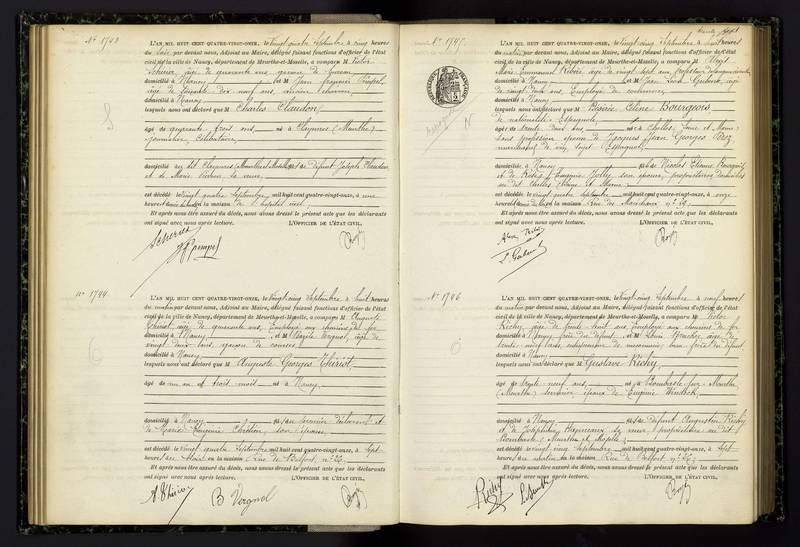 N° 1743
L'AN MIL HUIT CENT QUATRE-VINGT-ONZE, le vingt quatre Septembre à cinq heures
du soir par devant nous, Adjoint au Maire, délégué faisant fonctions d'officier de l'état
civil de la ville de Nancy, département de Meurthe-et-Moselle, a comparu M Victor
Scherer, âgé de quarante ans, garçon de bureau
domicilié à Nancy et M Jean François Pimpel,
âgé de soixante dix neuf ans, ancien
domicilié à Nancy
lesquels nous ont déclaré que M Charles Claudon,
âgé de quarante trois ans né à Clayeures (Meurthe)
journalier, Célibataire
domicilié au dit Clayeures (Meurthe et Moselle) fils de défunt Joseph Claudon
et de Marie sa veuve,
est décédé le vingt quatre Septembre mil huit cent quatre-vingt-onze, à une
heure en la maison de l'hôpital civil.
Et après nous être assuré du décès, nous avons dressé le présent acte que les déclarants
ont signé avec nous après lecture. L'OFFICIER DE L'ÉTAT CIVIL,
Scherer
N° 1744
L'AN MIL HUIT CENT QUATRE-VINGT-ONZE, le vingt cinq Septembre à huit heures
du matin par devant nous, Adjoint au Maire, délégué faisant fonctions d'officier de l'état
civil de la ville de Nancy, département de Meurthe-et-Moselle, a comparu M Auguste
Thiriot, âgé de quarante ans, Employé aux chemins de fer
domicilié à Nancy et M Basile Vergnol, âgé de
vingt deux ans, garçon de courses
domicilié à Nancy
lesquels nous ont déclaré que M Auguste Georges Thiriot,
âgé de un an et trois mois né à Nancy
domicilié à Nancy fils du premier déclarant et
de Marie Virginie Chrétien, son épouse
est décédé le vingt quatre Septembre mil huit cent quatre-vingt-onze, à sept
heures du soir en la maison, Rue de Belfort n° 22.
Et après nous être assuré du décès, nous avons dressé le présent acte que les déclarants
ont signé avec nous après lecture. L'OFFICIER DE L'ÉTAT CIVIL,
A Thiriot B Vergnol
N° 1745
L'AN MIL HUIT CENT QUATRE-VINGT-ONZE, le vingt cinq Septembre à huit heures
du matin par devant nous, Adjoint au Maire, délégué faisant fonctions d'officier de l'état
civil de la ville de Nancy, département de Meurthe-et-Moselle, a comparu M Aloys
Marie Emmanuel âgé de vingt sept ans, professeur
domicilié à Nancy et M Jean Louis âgé
de vingt deux ans, Employé de commerce
domicilié à Nancy
lesquels nous ont déclaré que M Désirée Eléne Bourgeois,
de nationalité Espagnole,
âgée de trente deux ans née à Chelles (Seine et Marne)
sans profession épouse de Jacques Jean Georges
marchand de vin, sujet Espagnol,
domiciliée à Nancy fille de Nicolas Etienne Bourgeois
et de Rose Eugénie Jolly, son épouse, propriétaires domiciliés
au dit Chelles (Seine et Marne)
est décédée le vingt quatre Septembre mil huit cent quatre-vingt-onze, à onze
heures en la maison Rue des Maréchaux n° 29.
Et après nous être assuré du décès, nous avons dressé le présent acte que les déclarants
ont signé avec nous après lecture. L'OFFICIER DE L'ÉTAT CIVIL,
N° 1746
L'AN MIL HUIT CENT QUATRE-VINGT-ONZE, le vingt cinq Septembre à neuf heures
du matin par devant nous, Adjoint au Maire, délégué faisant fonctions d'officier de l'état
civil de la ville de Nancy, département de Meurthe-et-Moselle, a comparu M Victor
Richy, âgé de trente huit ans, Employé aux chemins de fer
domicilié à Nancy, frère du défunt, et M Louis âgé de
trente huit ans, entrepreneur de maçonnerie, beau frère du défunt
domicilié à Nancy
lesquels nous ont déclaré que M Gustave Richy,
âgé de trente neuf ans né à Rombasle sur Meurthe
(Meurthe) époux de Eugénie
domicilié à Nancy fils de défunt Augustin Richy
et de Joséphine Hanneaux sa veuve, propriétaire au dit
Rombasle (Meurthe et Moselle)
est décédé le vingt cinq Septembre mil huit cent quatre-vingt-onze, à sept
heures du matin en la maison Rue de Belfort n° 20.
Et après nous être assuré du décès, nous avons dressé le présent acte que les déclarants
ont signé avec nous après lecture. L'OFFICIER DE L'ÉTAT CIVIL,
Richy